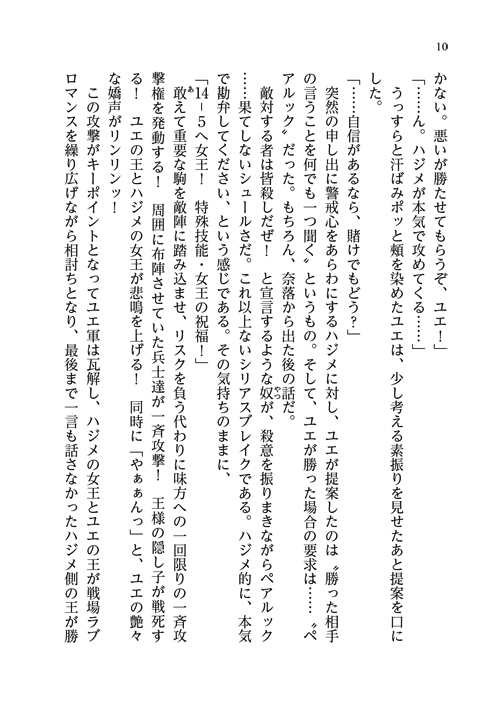 10
かない。悪いが勝たせてもらうぞ、ユエ!」
「……ん。ハジメが本気で攻めてくる……」
うっすらと汗ばみポッと頰を染めたユエは、少し考える素振りを見せたあと提案を口に
した。
「……自信があるなら、賭けでもどう?」
突然の申し出に警戒心をあらわにするハジメに対し、ユエが提案したのは〝勝った相手
の言うことを何でも一つ聞く〟というもの。そして、ユエが勝った場合の要求は……〝ペ
アルック〟だった。もちろん、奈落から出た後の話だ。
敵対する者は皆殺しだぜ! と宣言するような奴が、殺意を振りまきながらペアルック
……果てしないシュールさだ。これ以上ないシリアスブレイクである。ハジメ的に、本気
で勘弁してください、という感じである。その気持ちのままに、
「14-5へ女王! 特殊技能・女王の祝福!」
敢えて重要な駒を敵陣に踏み込ませ、リスクを負う代わりに味方への一回限りの一斉攻
撃権を発動する! 周囲に布陣させていた兵士達が一斉攻撃! 王様の隠し子が戦死す
る! ユエの王とハジメの女王が悲鳴を上げる! 同時に「やぁぁんっ」と、ユエの艶々
な嬌声がリンリンッ!
この攻撃がキーポイントとなってユエ軍は瓦解し、ハジメの女王とユエの王が戦場ラブ
ロマンスを繰り広げながら相討ちとなり、最後まで一言も話さなかったハジメ側の王が勝